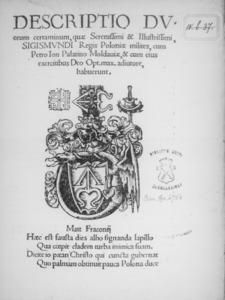 DESCRIPTIO DV-
orum certaminum, quæ Serenissimi & Illustrissimi,
SIGISMVNDI Regis Poloniæ milites, cum
Petro Ion Palatino Moldaviæ, & cum eius
exercitibus Deo Opt. max. adiutore,
habuerunt.
Matt Franconij
Hæc est fausta dies albo signanda lapillo
Qua cœpit cladem turba inimica suam.
Dicite io pæan Christo qui cuncta gubernat
Quo palmam obtinuit pauca Polona duce